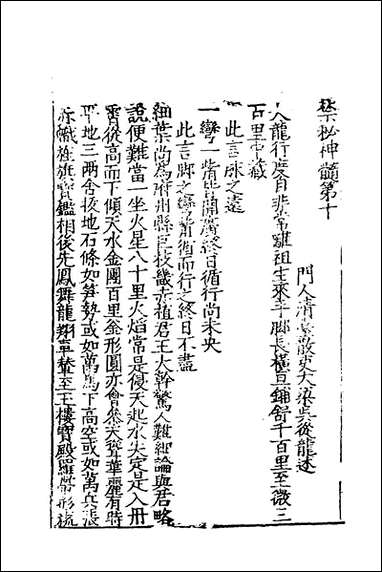 禁秘神髓第十
門人清臺散吏大梁吳從龍述
大龍行度自非常離祖生來手脚長橫亘鋪舒千百里至微三
百里
此言脉之遠
一彎一皆廣終日循行尚未央
此言脚之循而行之終日不盡
細葉尚為府州縣巨枝幾去植君王大幹驚人難細論與君略
說便難當一坐火星八十里火焰常是侵天起水尖定是入冊
霄從高而下傾天水金團百里形圓亦會參天聳華麗有時
平地三兩舍拔地石條如笋勢或如萬馬下高空或如萬兵張
赤幟旌旗寶鑑相後先鳳舞龍翔輦至玉樓寶殿羅帶形